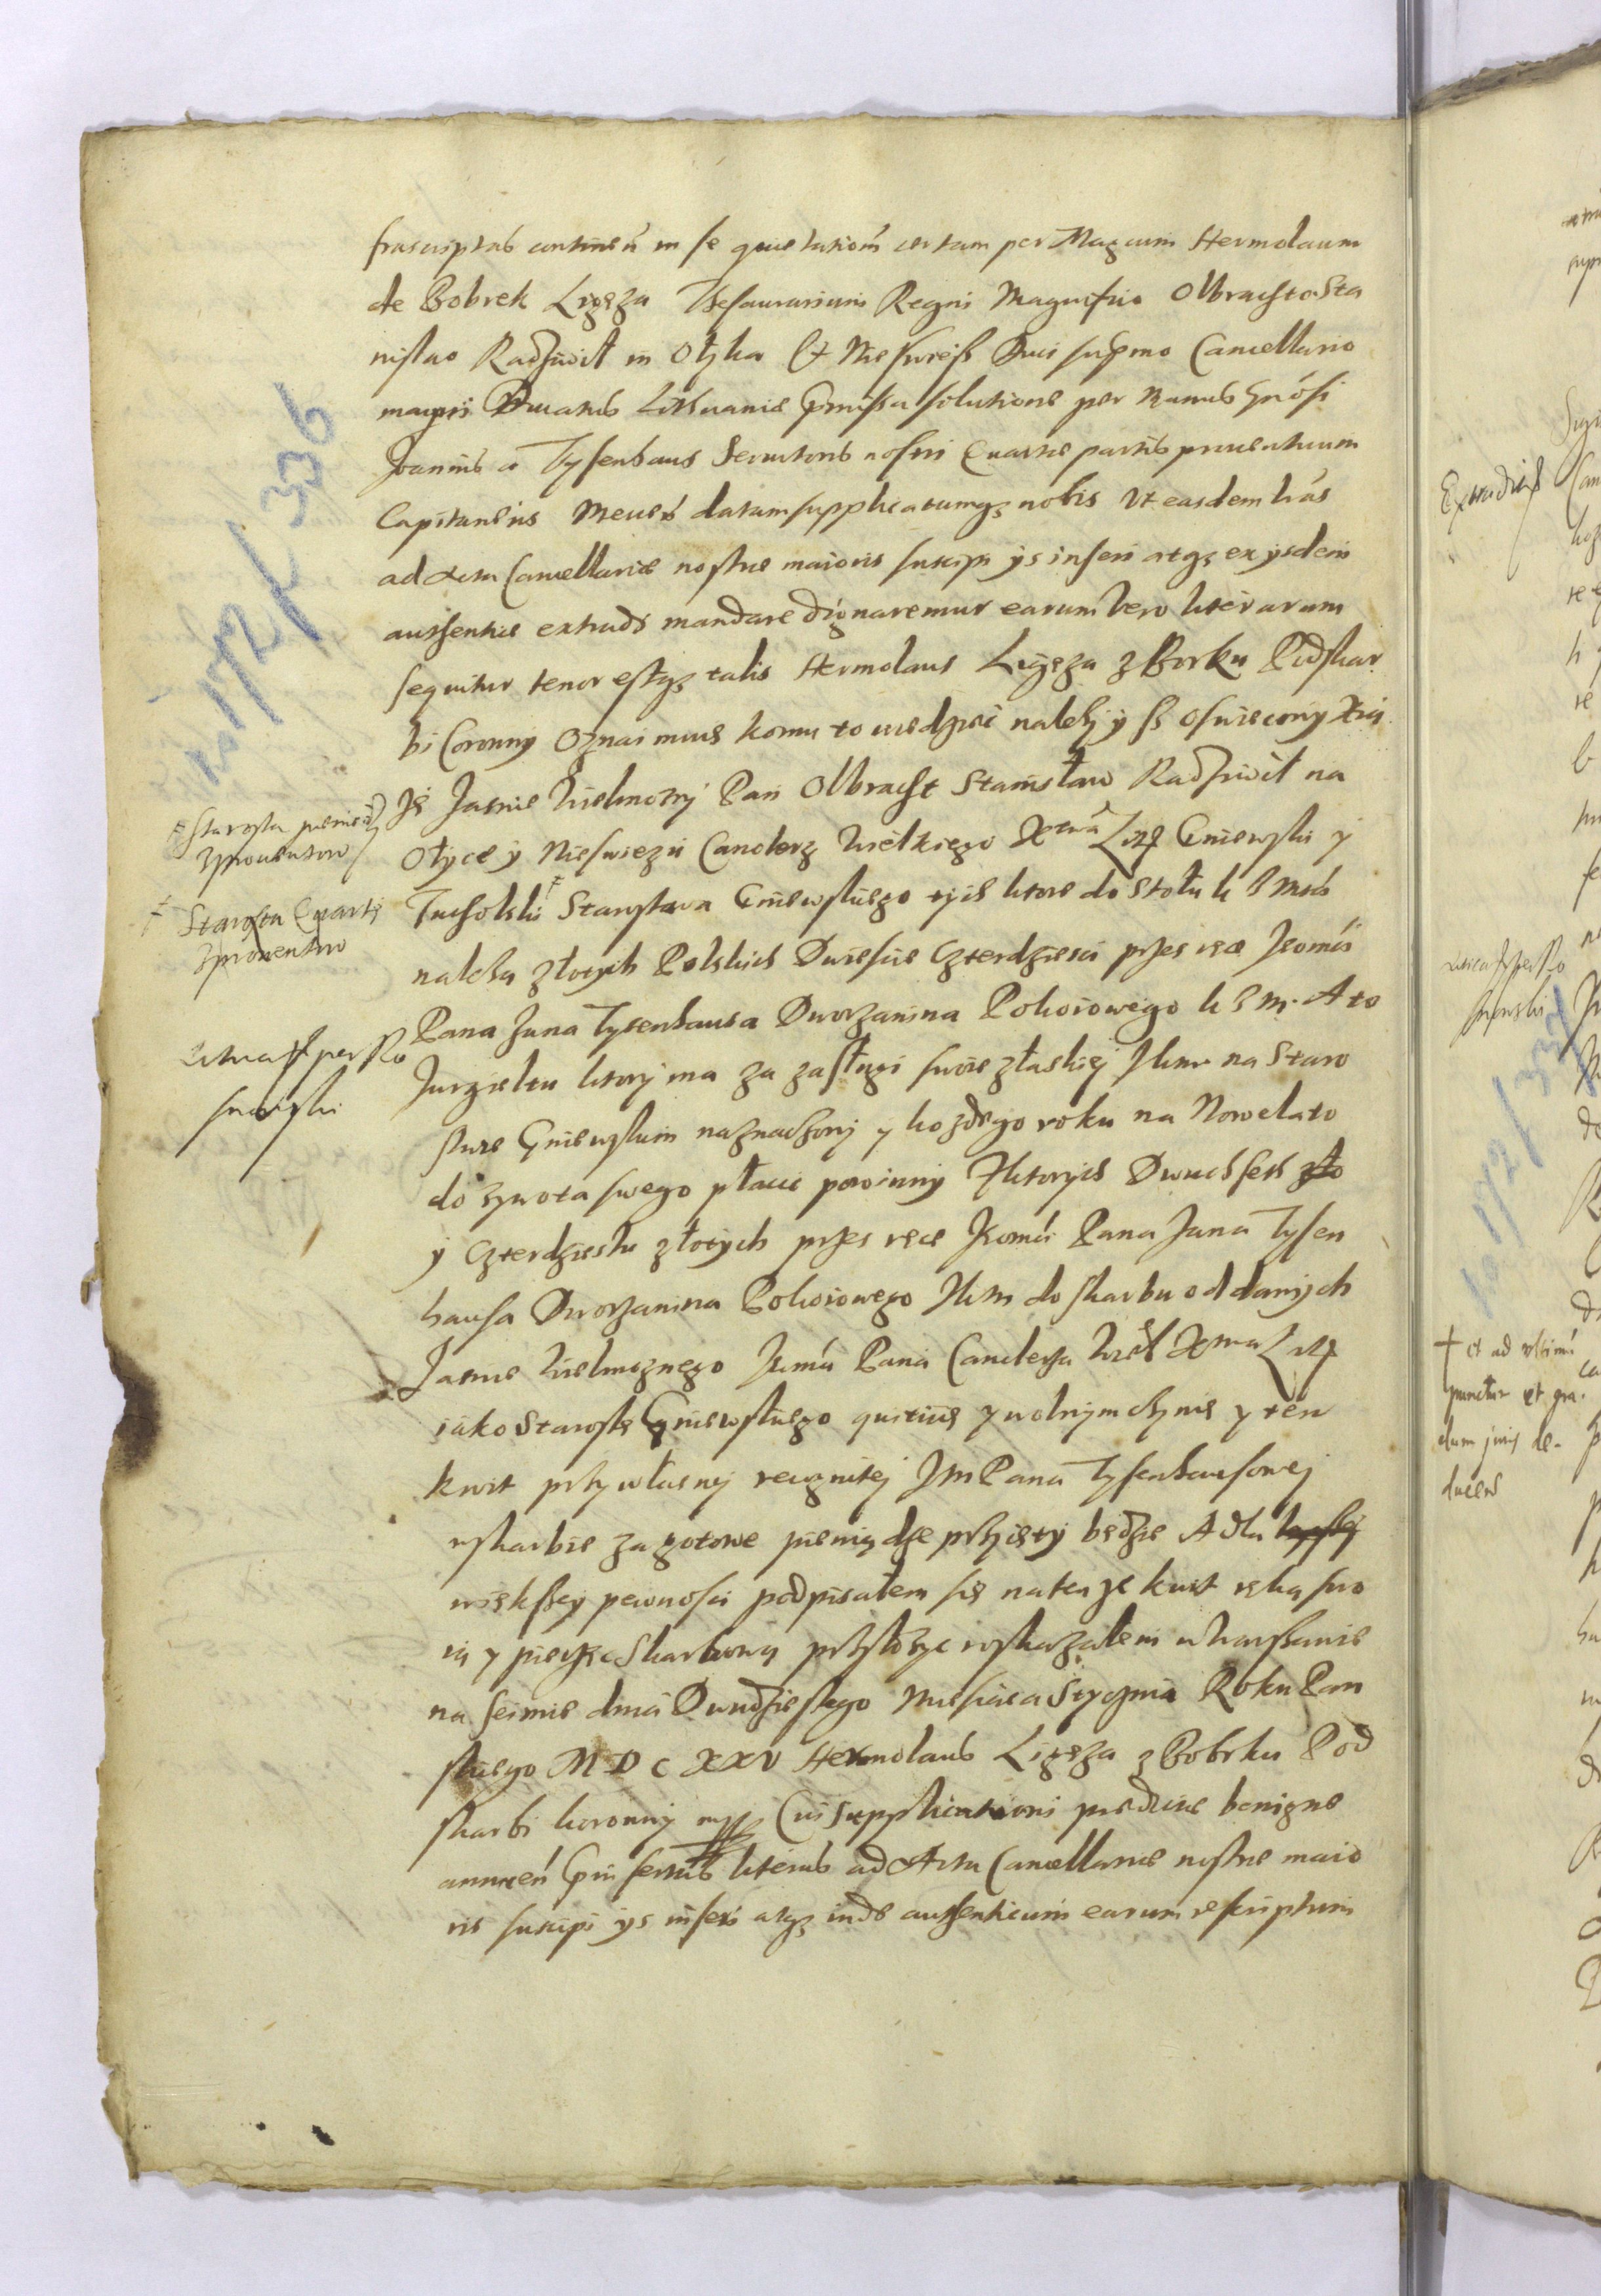 frascriptas contineń in se quietationḿ certam per Magcum Hermolaum
de Bobrek Ligęza Thesaurarium Regni Magnifico Olbrachto Sta
nislao Radziwił in Ołyka Et Nieswiesz Duci supmo Cancellario
magni Ducatus Lithuaniæ pmissa solutione per manus Gnosi
Joannis a Tysenhaus Servitoris nostri Quartæ partis proventuum
Capitaneus Meveń datam supplicatumqz nobis Ut easdem lras
ad Acta Cancellariæ nostræ maioris suscipi ys inseri atqz ex ysdem
authentice extradi mandare dignaremur earum vero literarum
sequitur tenor estqz talis Hermolaus Ligęza z Borku Podskar
bi Coronny Oznaimuie komu to wiedziec nalezy ysz Oswiecony Xżę
JE Jasnie Wielmozny Pan Olbracht Stanisław Radziwił na
Ołyce y Nieswiezu Canclerz Wielkiego Xtwa Lit Gniewski y
Tucholski ‡ Starostwa Gniewskiego tych ktore do Stołu K J Mći
naleza złotych Polskich Dwiescie Czterdziesci przes ręce Jeomći
Pana Jana Tysenhausa Dworzanina Pokoiowego K J M. A to
Jurgieltu ktory ma za zasługi swoie z łaskiej JKm na Staro
stwie Gniewskim naznaczony y kozdego roku na Nowe lato
do zywota swego płacic powinny Z ktorych Dwuchset zło
y Czterdziestu złotych przes ręce Jeomći Pana Jana Tysen
hausa Dworzanina Pokoiowego JKM do skarbu oddanych
Jasnie Wielmoznego Jeomći Pana Canclerza Wiel Xtwa Lit
iako Starostę Gniewskiego quituię y wolnym czynię y ten
kwit przy własnej recognitej JM Pana Tysenhausowej
w skarbie za gotowe pieniądze przięty będzie A dla
wiekszey pewnosci podpisałem się na ten ze kwit ręką swo
ią y pieczęc Skarbową przyłozyc roskazałem w Warszawie
na Seimie dnia Dwudziestego Miesiaca Stycznia Roku Pan
skiego M D C XXV Hermolaus Ligęza z Bobrku Pod
skarbi koronny mpp Cui Supplicationi prædictæ benigne
annueń pinsertas literas ad Acta Cancellariæ nostræ maio
ris suscipi ys inseri atqz inde authenticum earum rescriptum
no 172 / 336
‡ Starosta pieniędz
z prowentow
‡ Starosta Quartę
z prowentow
et ad ultimū
punctū et gra-
dum juris de-
ducens
no 172 / 337